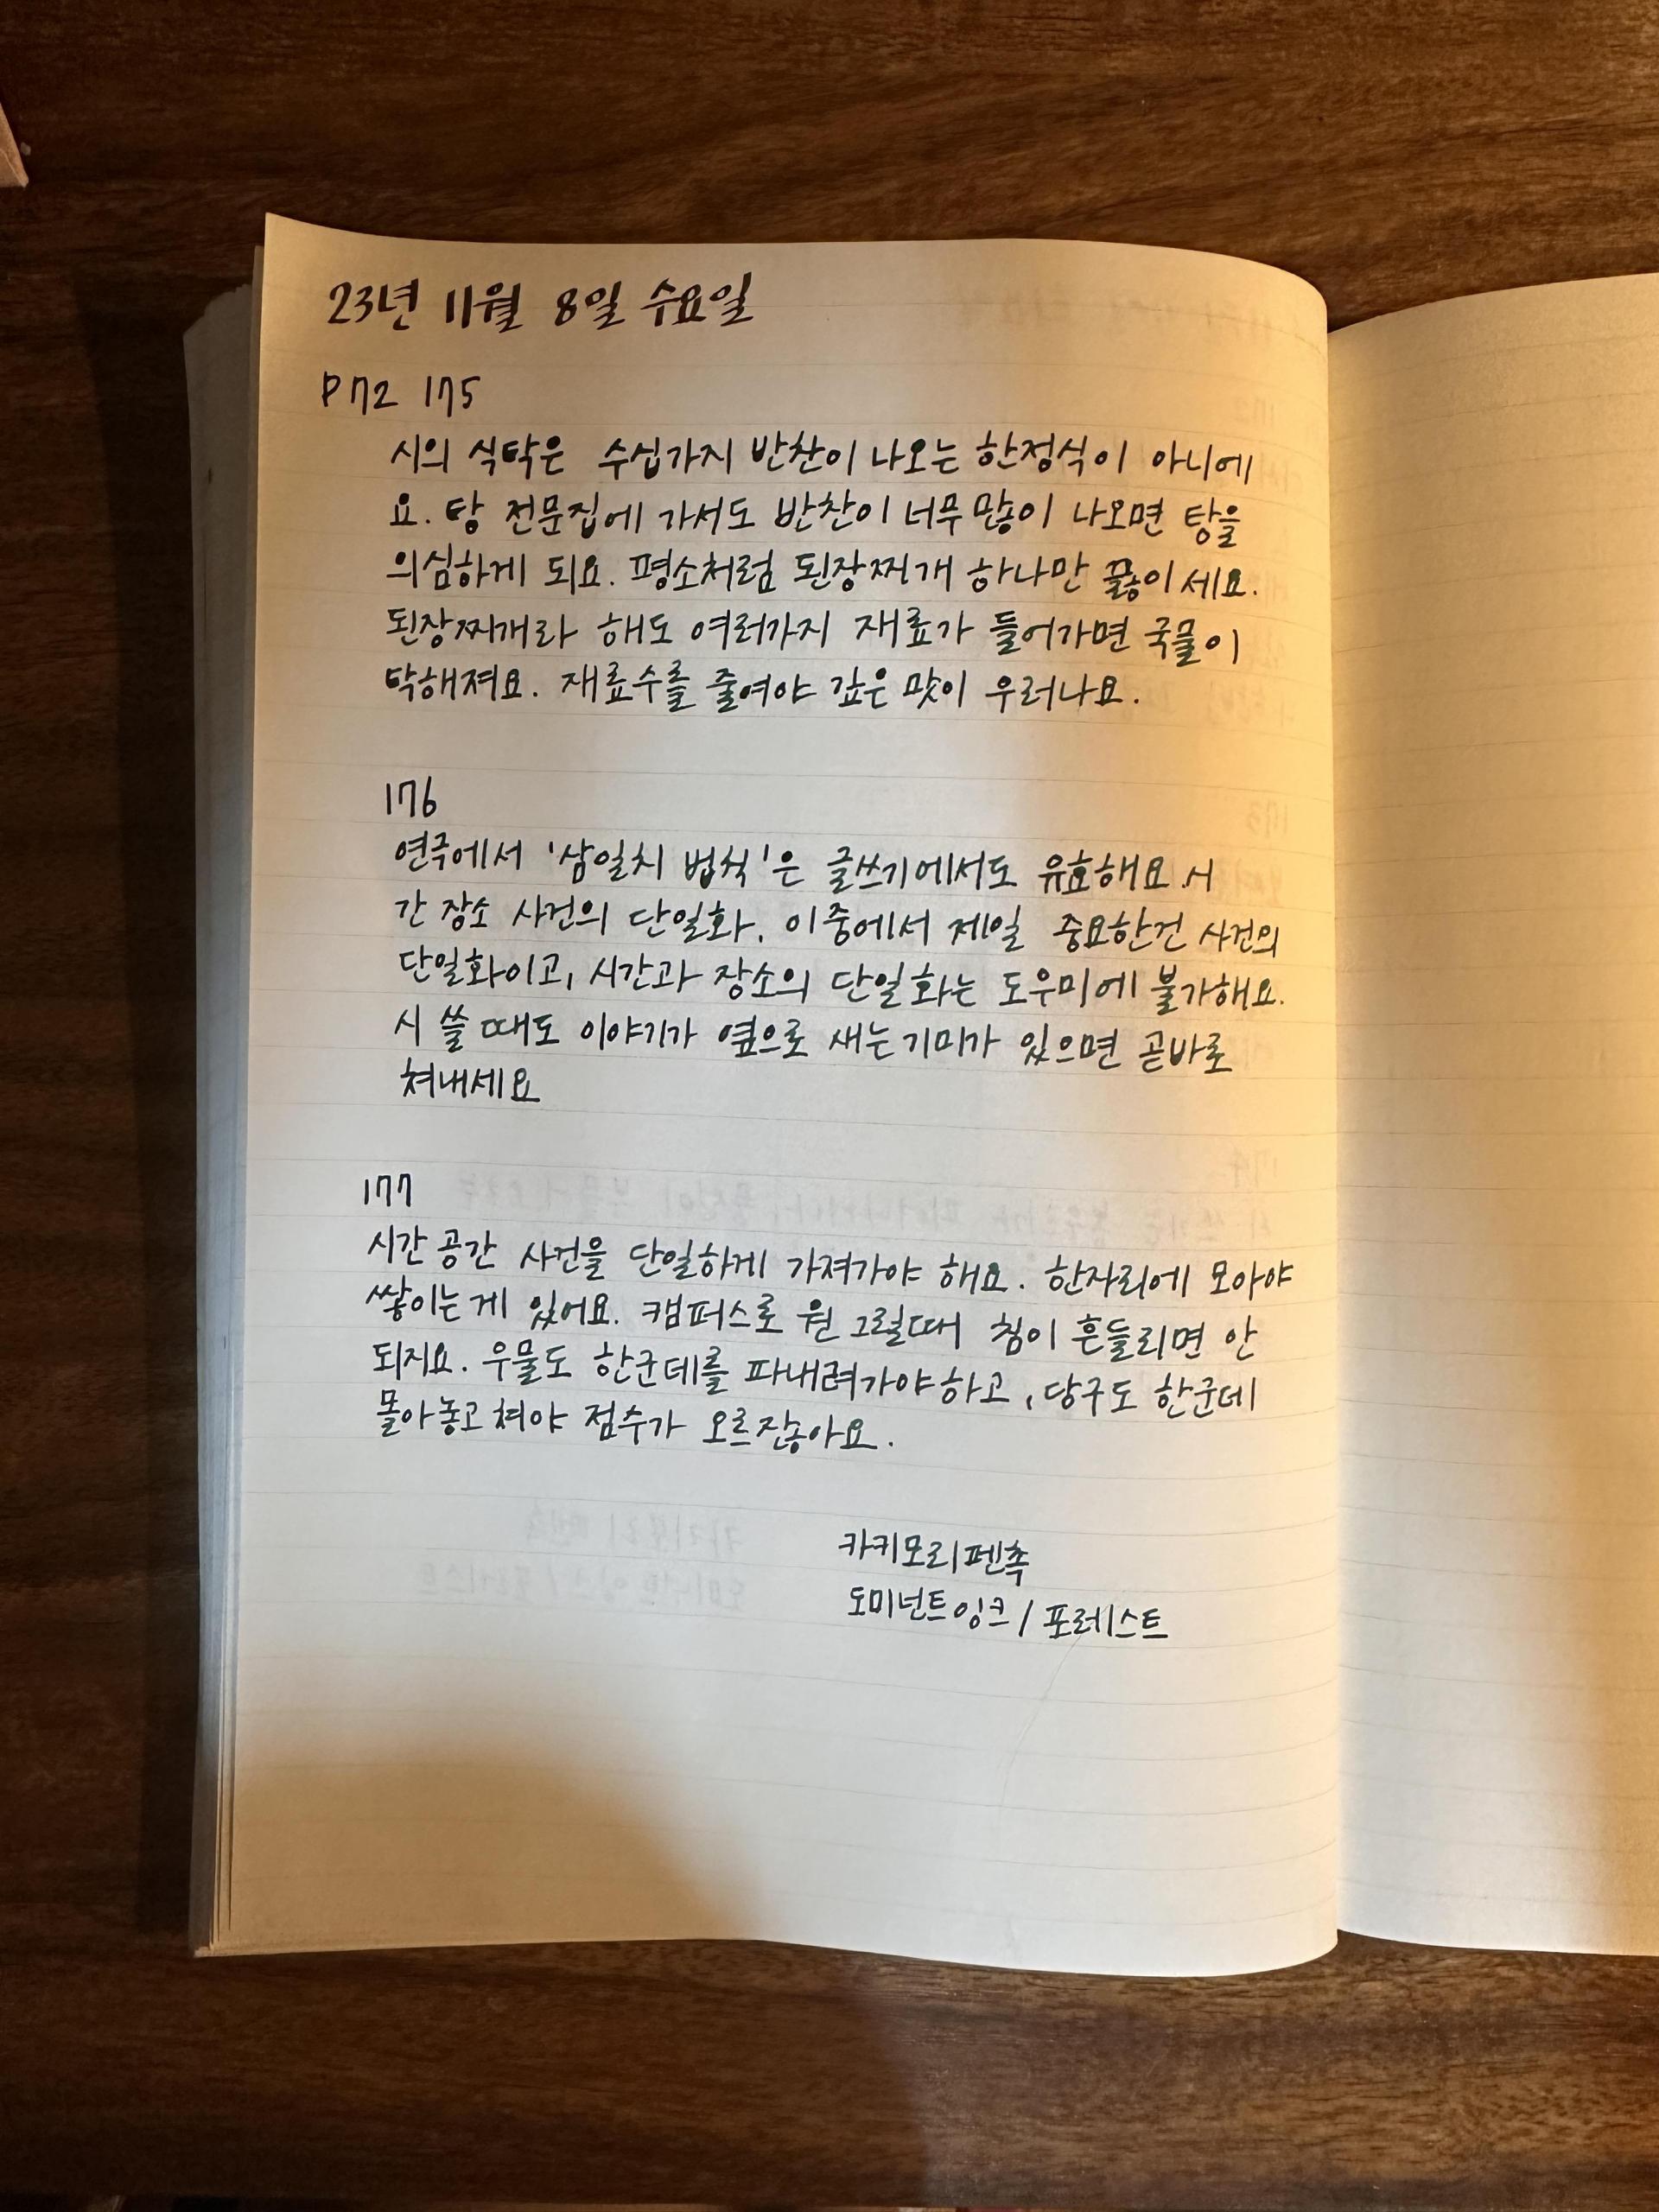 23년 11월 8일 수요일
P72 175
시의 식탁은 수십가지 반찬이 나오는 한정식이 아니에
요. 탕 전문집에 가서도 반찬이 너무 많이 나오면 탕을
의심하게 되요. 평소처럼 된장찌개 하나만 끓이세요.
된장찌개라 해도 여러가지 재료가 들어가면 국물이
탁해져요. 재료수를 줄여야 깊은 맛이 우러나요.
176
연극에서 '삼일치 법칙'은 글쓰기에서도 유효해요. 시
간 장소 사건의 단일화. 이중에서 제일 중요한건 사건의
단일화이고, 시간과 장소의 단일화는 도우미에 불가해요.
시 쓸 때도 이야기가 옆으로 새는 기미가 있으면 곧바로
쳐내세요
177
시간 공간 사건을 단일하게 가져가야 해요. 한자리에 모아야
쌓이는게 있어요. 캠퍼스로 원 그릴때 침이 흔들리면 안
되지요. 우물도 한군데를 파내려가야하고, 당구도 한군데
몰아놓고 쳐야 점수가 오르잖아요.
카키모리펜촉
도미넌트잉크/포레스트